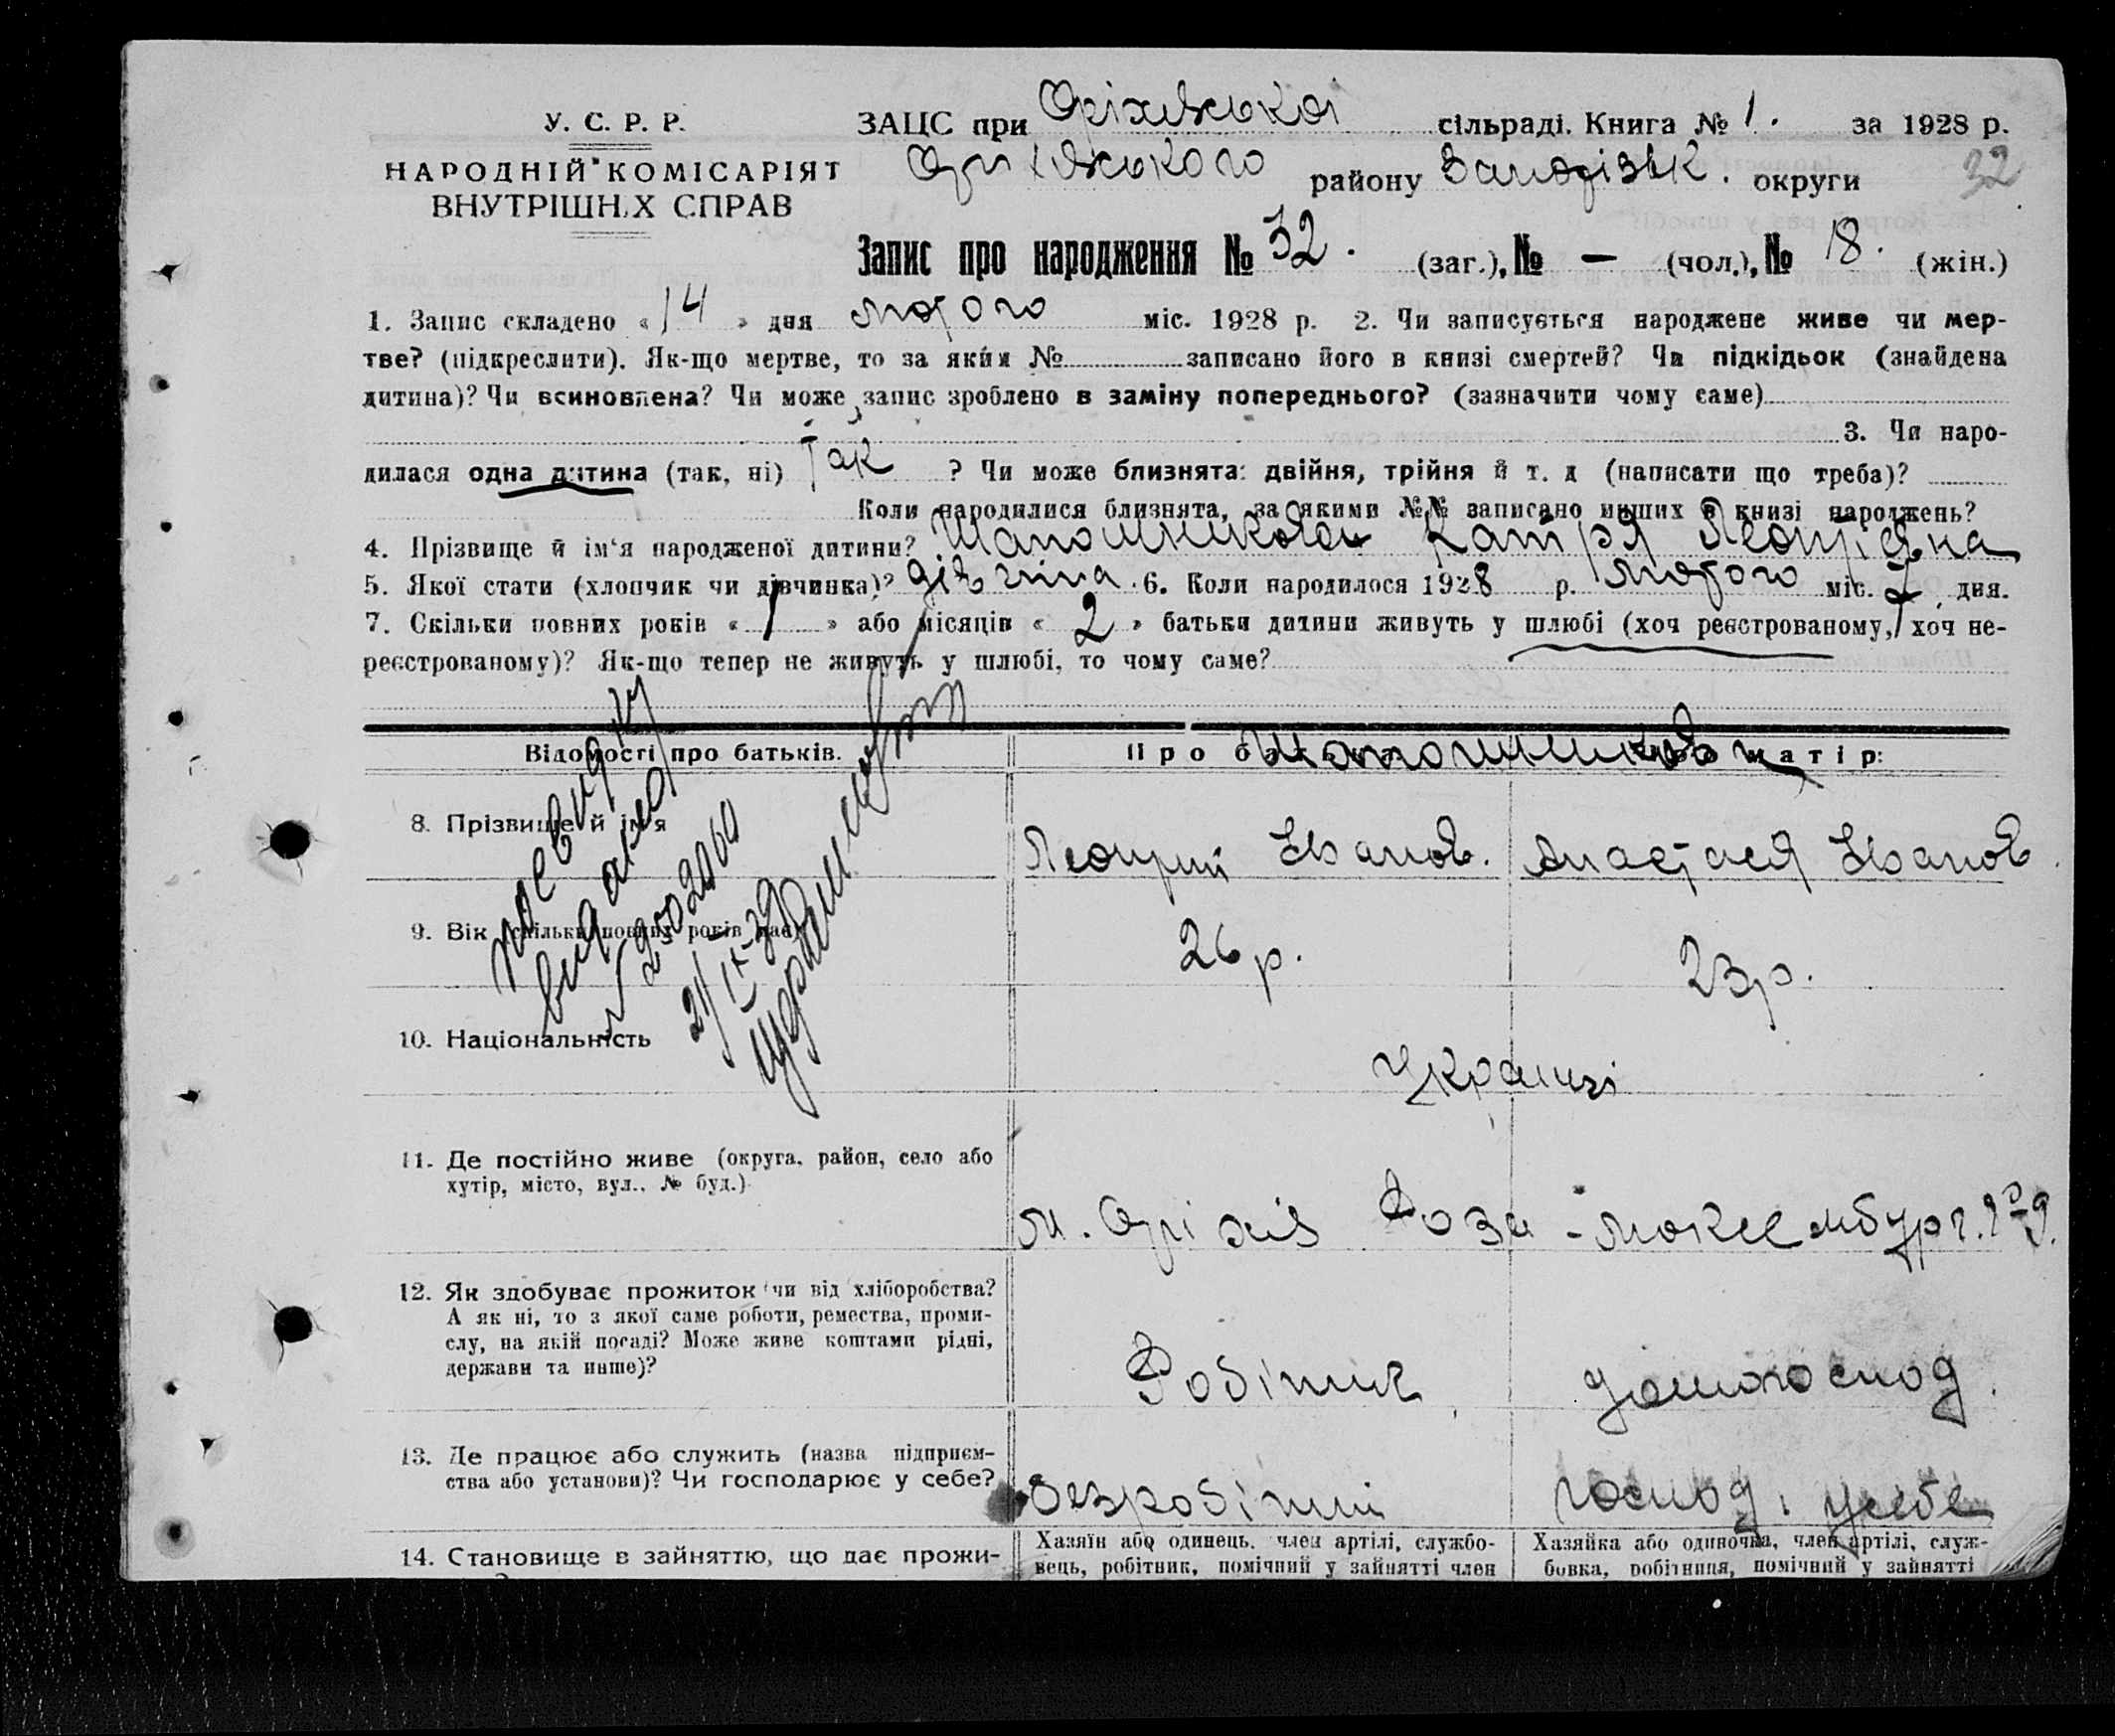 У. С. Р. Р.
НАРОДНІЙ КОМІСАРІЯТ
ВНУТРІШНІХ СПРАВ
ЗАЦС при Оріхівській сільраді. Книга № 1. за 1928 р.
Оріхівського району Запорізьк. округи 32
Запис про народження № 32. (заг.), № — (чол.), № 18. (жін.)
1. Запис складено « 14 » дня лютого міс. 1928 р. 2. Чи записується народжене живе чи мер-
тве? (підкреслити). Як-що мертве, то за яким № записано його в книзі смертей? Чи підкідьок (знайдена
дитина)? Чи всиновлена? Чи може запис зроблено в заміну попереднього? (зазначити чому саме)
3. Чи наро-
дилася одна дитина (так, ні) так ? Чи може близнята: двійня, трійня й т. д (написати що треба)?
Коли народилися близнята, за якими №№ записано инших в книзі народжень?
4. Прізвище й ім‘я народженої дитини? Шапошникова Катря
5. Якої стати (хлопчик чи дівчинка)? дівчина. 6. Коли народилося 1928 р. лютого міс. 7 дня.
7. Скільки повних років « 1 » або місяців « 2 » батьки дитини живуть у шлюбі (хоч реєстрованому, хоч не-
реєстрованому)? Як-що тепер не живуть у шлюбі, то чому саме?
Відомості про батьків. Про матір:
8. Прізвище й ім‘я
Іванов. Анастасія Іванов
9. Вік (скільки повних років має) 26 р. 23 р.
10. Національність Українці
11. Де постійно живе (округа, район, село або
хутір, місто, вул., № буд.)
м. Оріхів Роза-Люксембург.
12. Як здобуває прожиток чи від хліборобства?
А як ні, то з якої саме роботи, ремества, проми-
слу, на якій посаді? Може живе коштами рідні,
держави та инше)?
Робітник домогоспод.
13. Де працює або служить (назва підприєм-
ства або установи)? Чи господарює у себе?
Безробітний господ. у себе
14. Становище в зайняттю, що дає прожи-
Хазяїн або одинець, член артілі, службо-
вець, робітник, помічний у зайнятті член
Хазяйка або одиночка, член артілі, служ-
бовка, робітниця, помічний у зайнятті